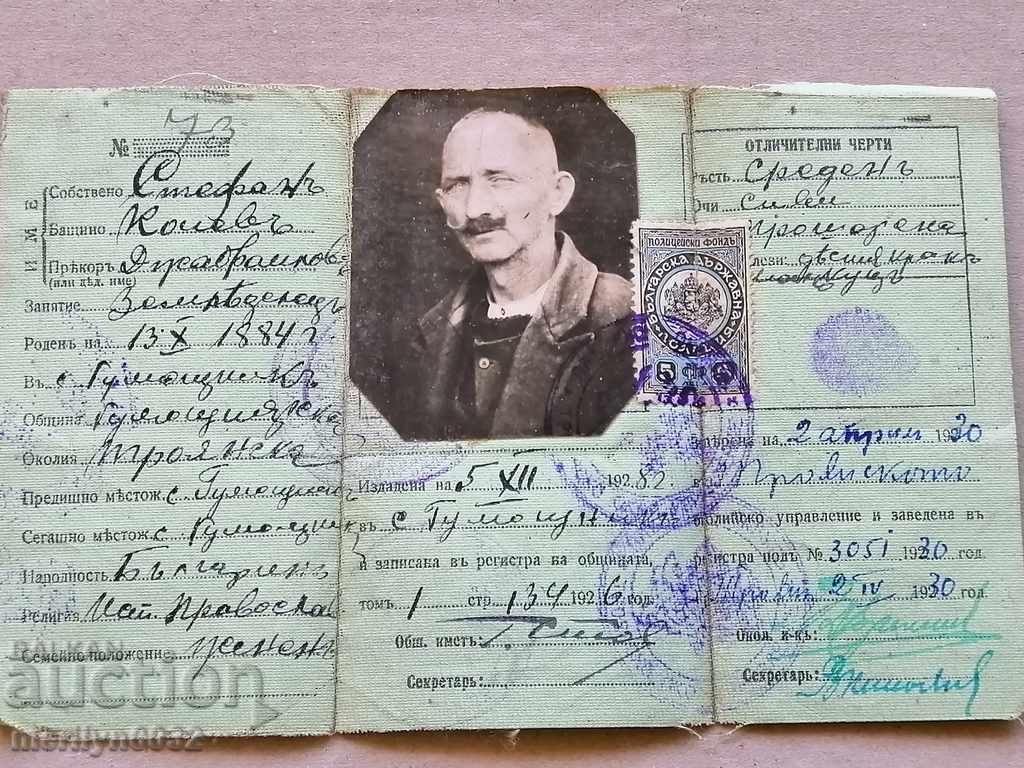 № 73
ИМЕ
Собствено Стефанъ
Бащино Колевъ
Прѣкоръ
(или дѣд. име)
Занятие Земледелецъ
Роденъ на 13 X 1884 г
Въ с Гумощникъ
Община Гумощнишка
Околия Троянска
Предишно мѣстож. с Гумощникъ
Сегашно мѣстож. с Гумощник
Народность Българинъ
Религия Изт. Православ
Семейно положение жененъ
Издадена на 5 XII 1928
въ с Гумощникъ
и записана въ регистра на общината,
томъ 1 стр. 134 1926 год.
Общ. кметъ:
Секретарь:
ПОЛИЦЕЙСКИ ФОНДЪ
БЪЛГАРСКА ДЪРЖАВНА
5 5
ОТЛИЧИТЕЛНИ ЧЕРТИ
Ръстъ среденъ
Очи сиви
десния кракъ
Завѣрена на 2 априлъ 1930
въ Троянското
околийско управление и заведена въ
регистра подъ № 3051 1930 год.
2 IV 1930 год.
Окол. н-къ:
Секретарь:
auction
merilyn0032